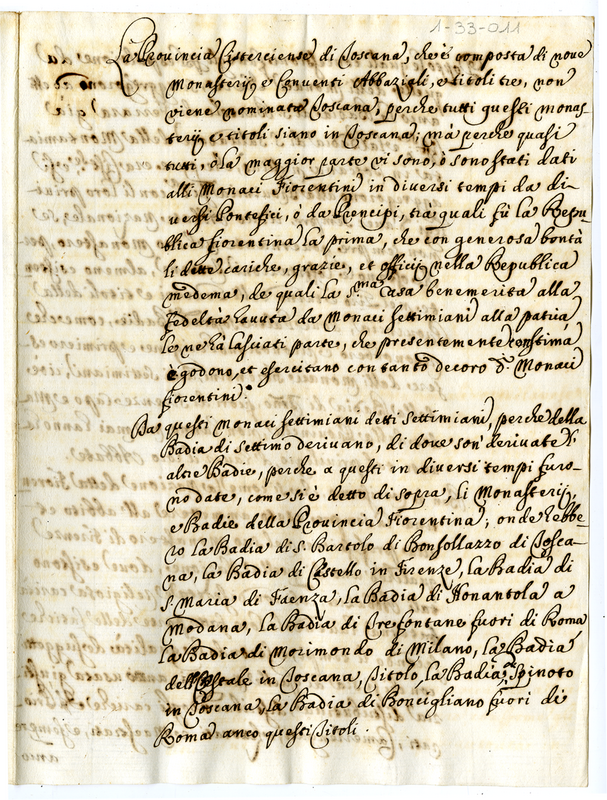 1-33-011
La Provincia Cisterciense di Toscana, che è composta di nove
Monasterij e Conventi Abbaziali, e titoli tre, non
viene nominata Toscana, perche tutti questi monas-
terij e titoli siano in Toscana; mà perche quasi
tutti, ò la maggior parte vi sono, ò sono stati dati
alli Monaci Fiorentini in diversi tempi da di-
versi Pontefici, ò da Prencipi, trà quali fù la Repu-
blica fiorentina la prima, che con generosa bontà
li dette cariche, grazie, et officij nella Republica
medema, de quali la S.ma Casa benemerita alla
fedeltà havuta da Monaci settimiani alla patria
le ne hà lasciati parte, che presentemente con stima
è godono, et esercitano con tanto decoro d.i Monaci
fiorentini.
Da questi Monaci settimiani detti settimiani, perche della
Badia di settimo derivano, di dove son' derivate
altre Badie, perche a questi in diversi tempi furo-
no date, come si è detto di sopra, li Monasterij,
e Badie della Provincia Fiorentina; onde hebbe-
ro la Badia di S. Bartolo di Bonsollazzo di Tosca-
na, la Badia di Cestello in Firenze, la Badia di
S. Maria di Faenza, la Badia di Nonantola a
Modana, la Badia di Tre fontane fuori di Roma,
la Badia di Morimondo di Milano, la Badia
dell in Toscana, Titolo, la Badia Spineto
in Toscana, la Badia di Boncigliano fuori di
Roma anco questi Titoli.